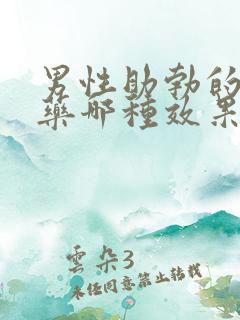 男性助勃的
藥哪種效果
雲朵3
未经同意禁止转载